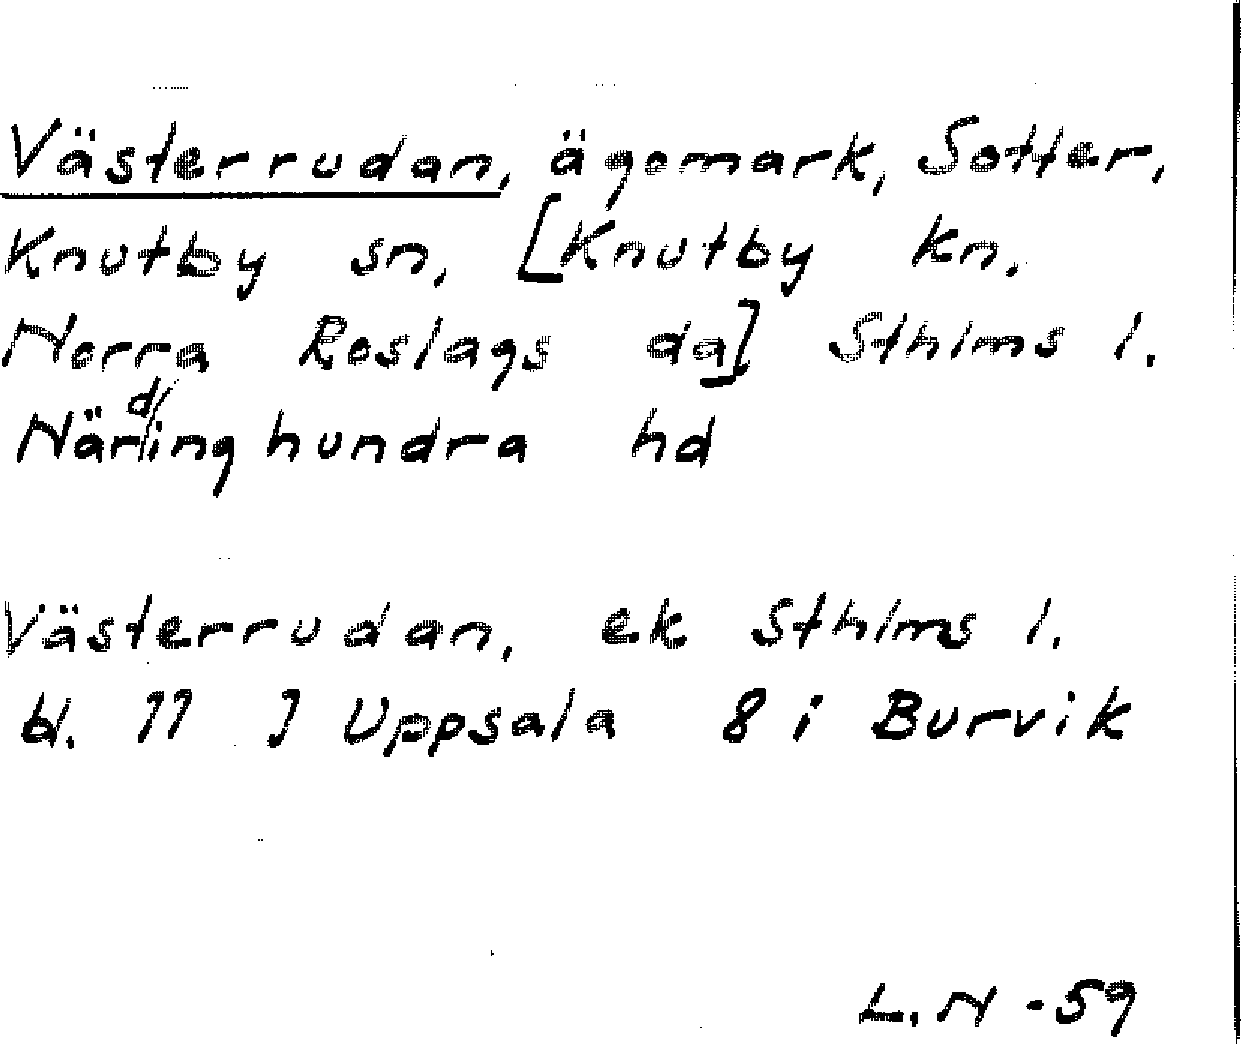 Västerrudan, ägomark, Sotter,
Knutby sn, [Knutby kn.
Norra Roslags da] Sthlms l.
Närdinghundra hd
Västerrudan, ek Sthlms l.
bl. 77 J Uppsala 8 i Burvik
L.N -59